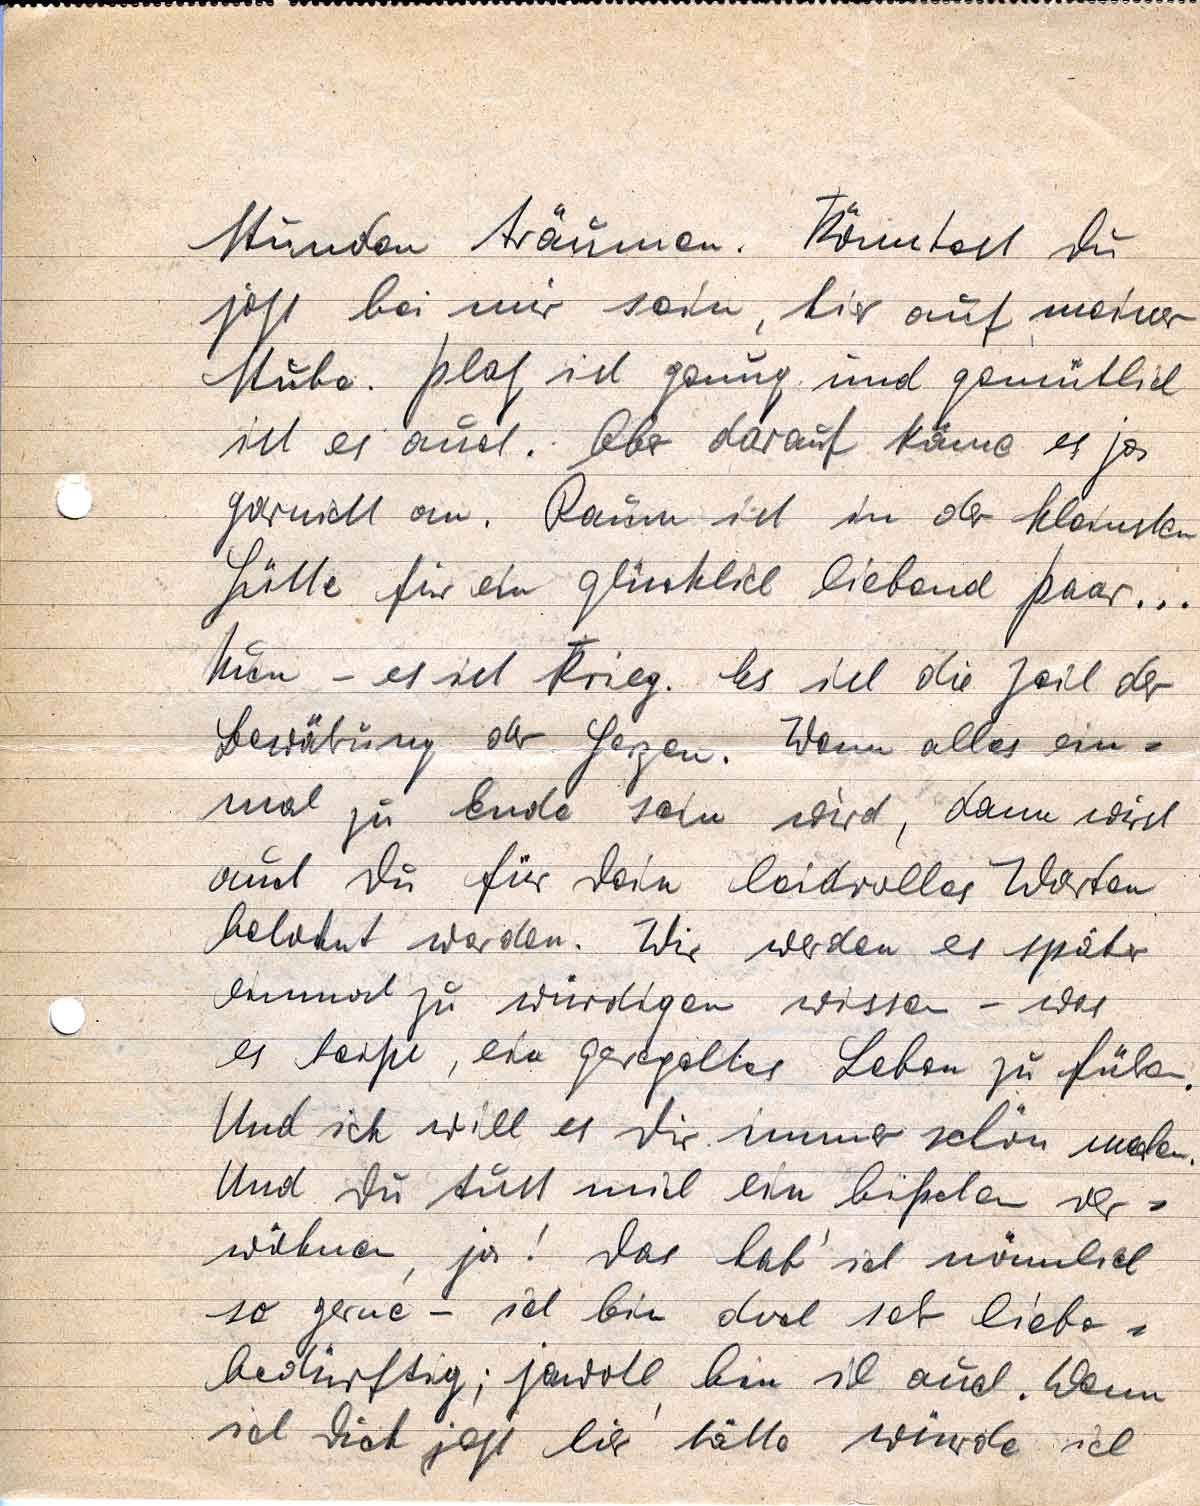 Stunden träumen. Könntest Du
jetzt bei mir sein, hier auf meiner
Stube. Platz ist genug und gemütlich
ist es auch. Aber darauf käme es ja
garnicht an. Raum ist in der kleinsten
Hütte für ein glücklich liebend Paar...
Nun – es ist Krieg. Es ist die Zeit der
Bewährung der Herzen. Wenn alles ein=
mal zu Ende sein wird, dann wirst
auch Du für Dein leidvolles Warten
belohnt werden. Wir werden es später
einmal zu würdigen wissen – was
es heißt, ein geregeltes Leben zu führen.
Und ich will es Dir immer schön machen.
Und Du tust mich ein bißchen ver=
wöhnen, ja! Das hab' ich nämlich
so gerne – ich bin doch sehr liebe=
bedürftig; jawohl, bin ich auch. Wenn
ich Dich jetzt hier hätte würde ich